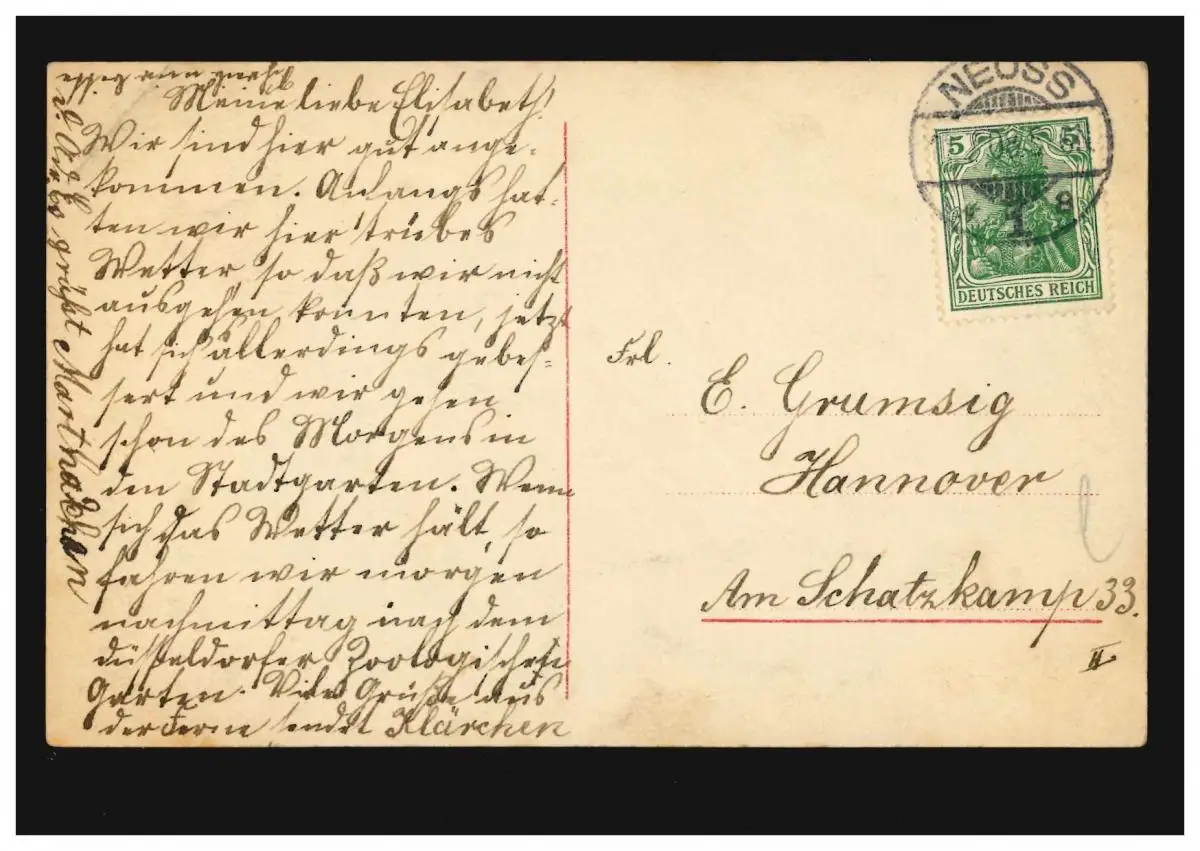 Meine liebe Elisabeth!
Wir sind hier gut ange-
kommen. Anfangs hat-
ten wir hier trübes
Wetter, so daß wir nicht
ausgehen konnten, jetzt
hat sich allerdings gebes-
sert und wir gehen
schon des Morgens in
den Stadtgarten. Wenn
sich das Wetter hält, so
fahren wir morgen
nachmittag nach dem
düsseldorfer Zoologischen
Garten. Viele Grüße aus
der Ferne sendet Klärchen
grüßt Marthachen
NEUSS
1
8
5 5
DEUTSCHES REICH
Frl.
E. Grumsig
Hannover
Am Schatzkamp 33.
II